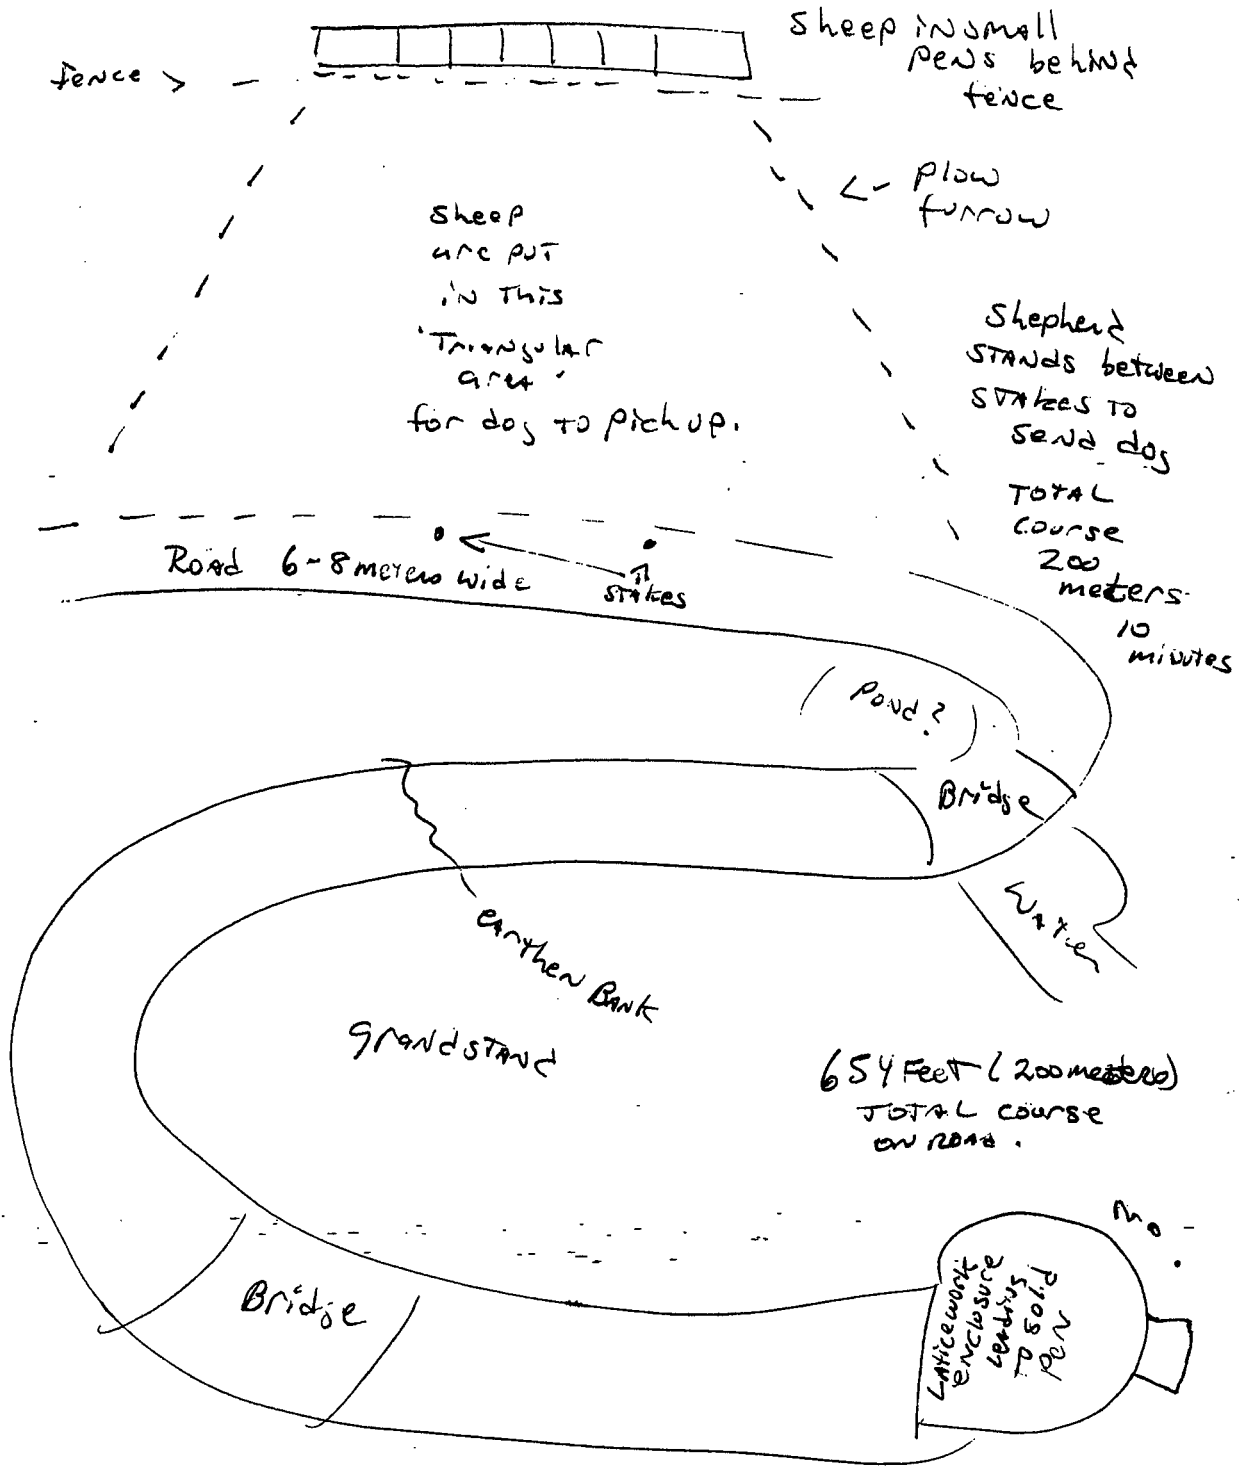 Sheep in small
pens behind
fence
fence >
<- plow
furrow
sheep
are put
in this
'Triangular
area'
for dog to pick up.
Shepherd
stands between
stakes to
send dog
Total
course
200
meters
10
minutes
Road 6-8 meters wide
stakes
Pond?
Bridge
Water
earthen Bank
grandstand
654 Feet (200 meters)
TOTAL course
on road.
Bridge
Laticework
enclosure
leading
to solid
pen